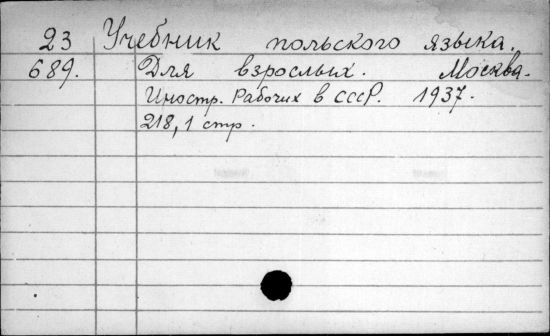 23 Учебник польского языка.
689. Для взрослых. Москва.
Иностр. Рабочих в СССР. 1937.
218, 1 стр.